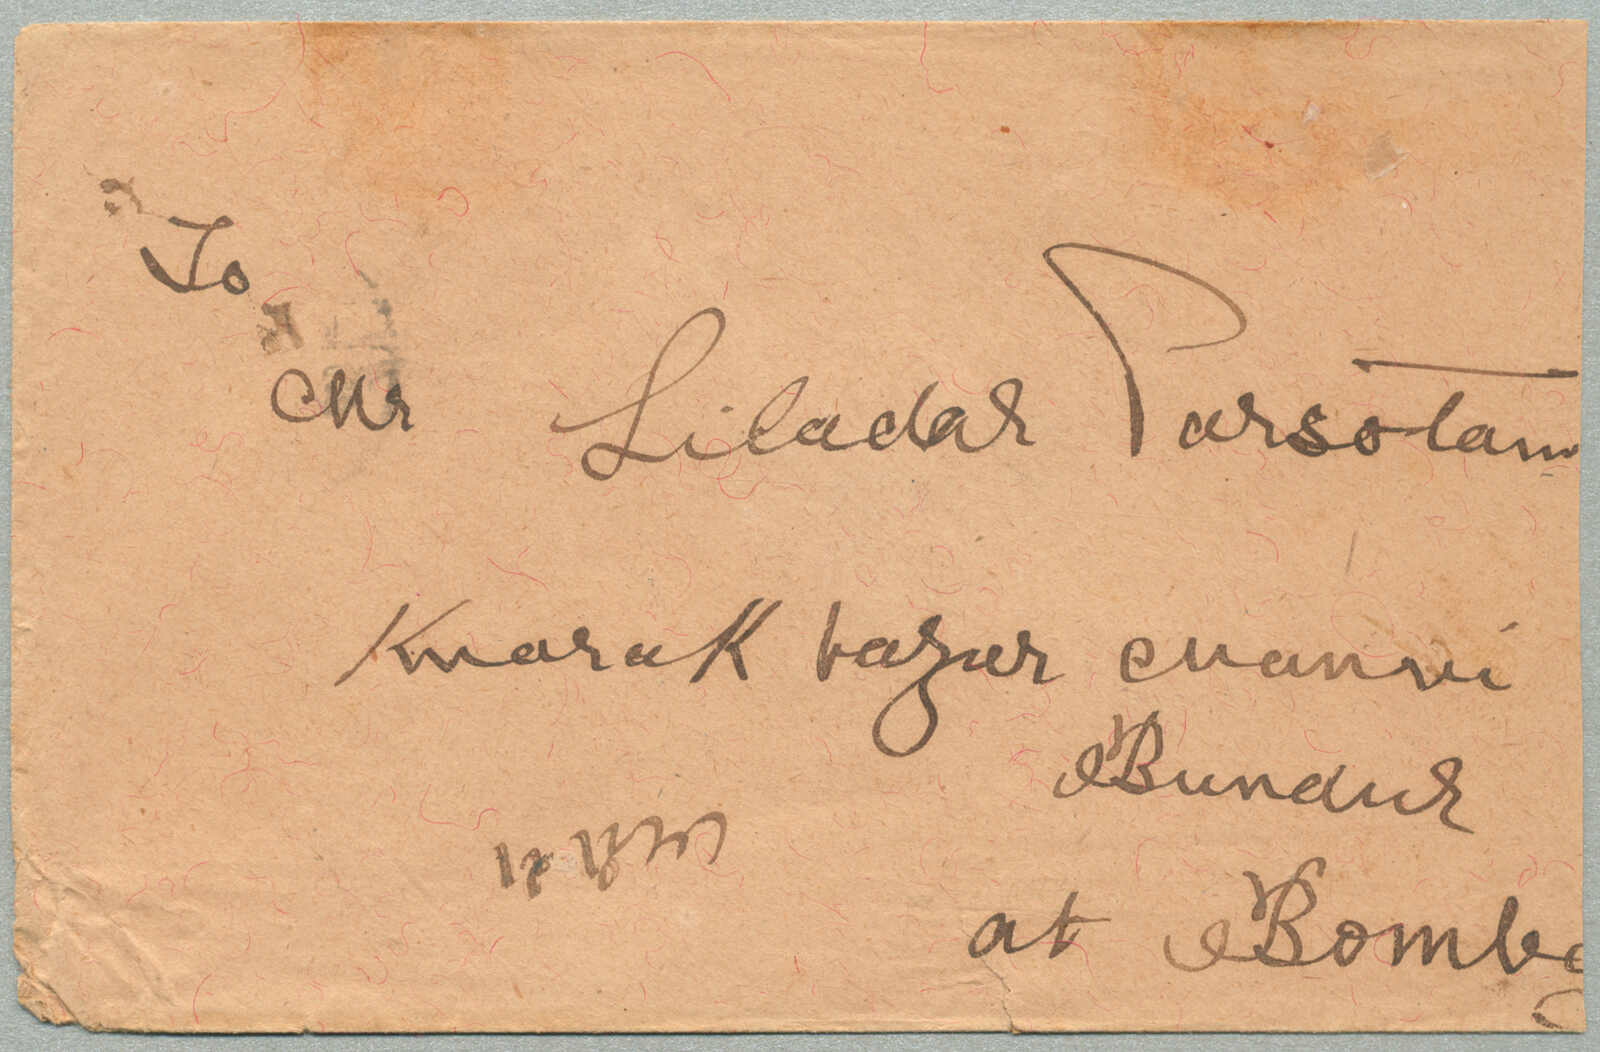 To
Mr Liladar Parsotam
Knarak bazar Manvi
Bundur
at Bomba